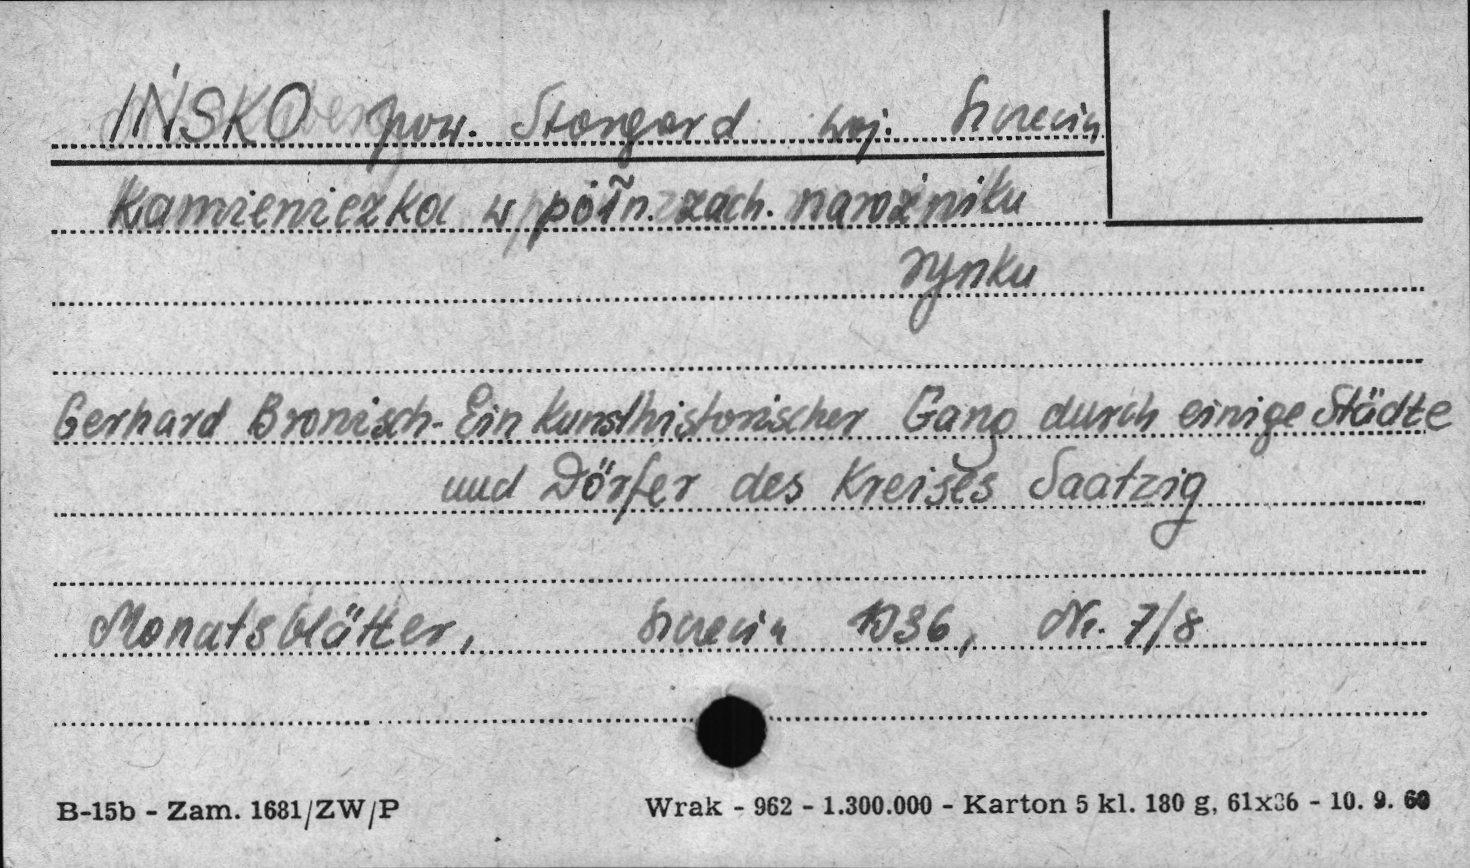 IŃSKO pow. Stargard woj. Szczecin
Kamieniczka w półn. zach. narożniku
rynku
Gerhard Bronisch - Ein kunsthistorischer Gang durch einige Städte
und Dörfer des Kreises Saatzig
Monatsblätter, Szczecin 1936, Nr. 7/8
B-15b - Zam. 1681/ZW/P Wrak - 962 - 1.300.000 - Karton 5 kl. 180 g, 61x86 - 10. 9. 60